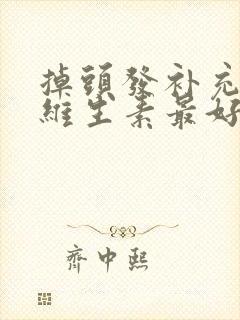 掉頭發补充
維生素最好
齊中熙